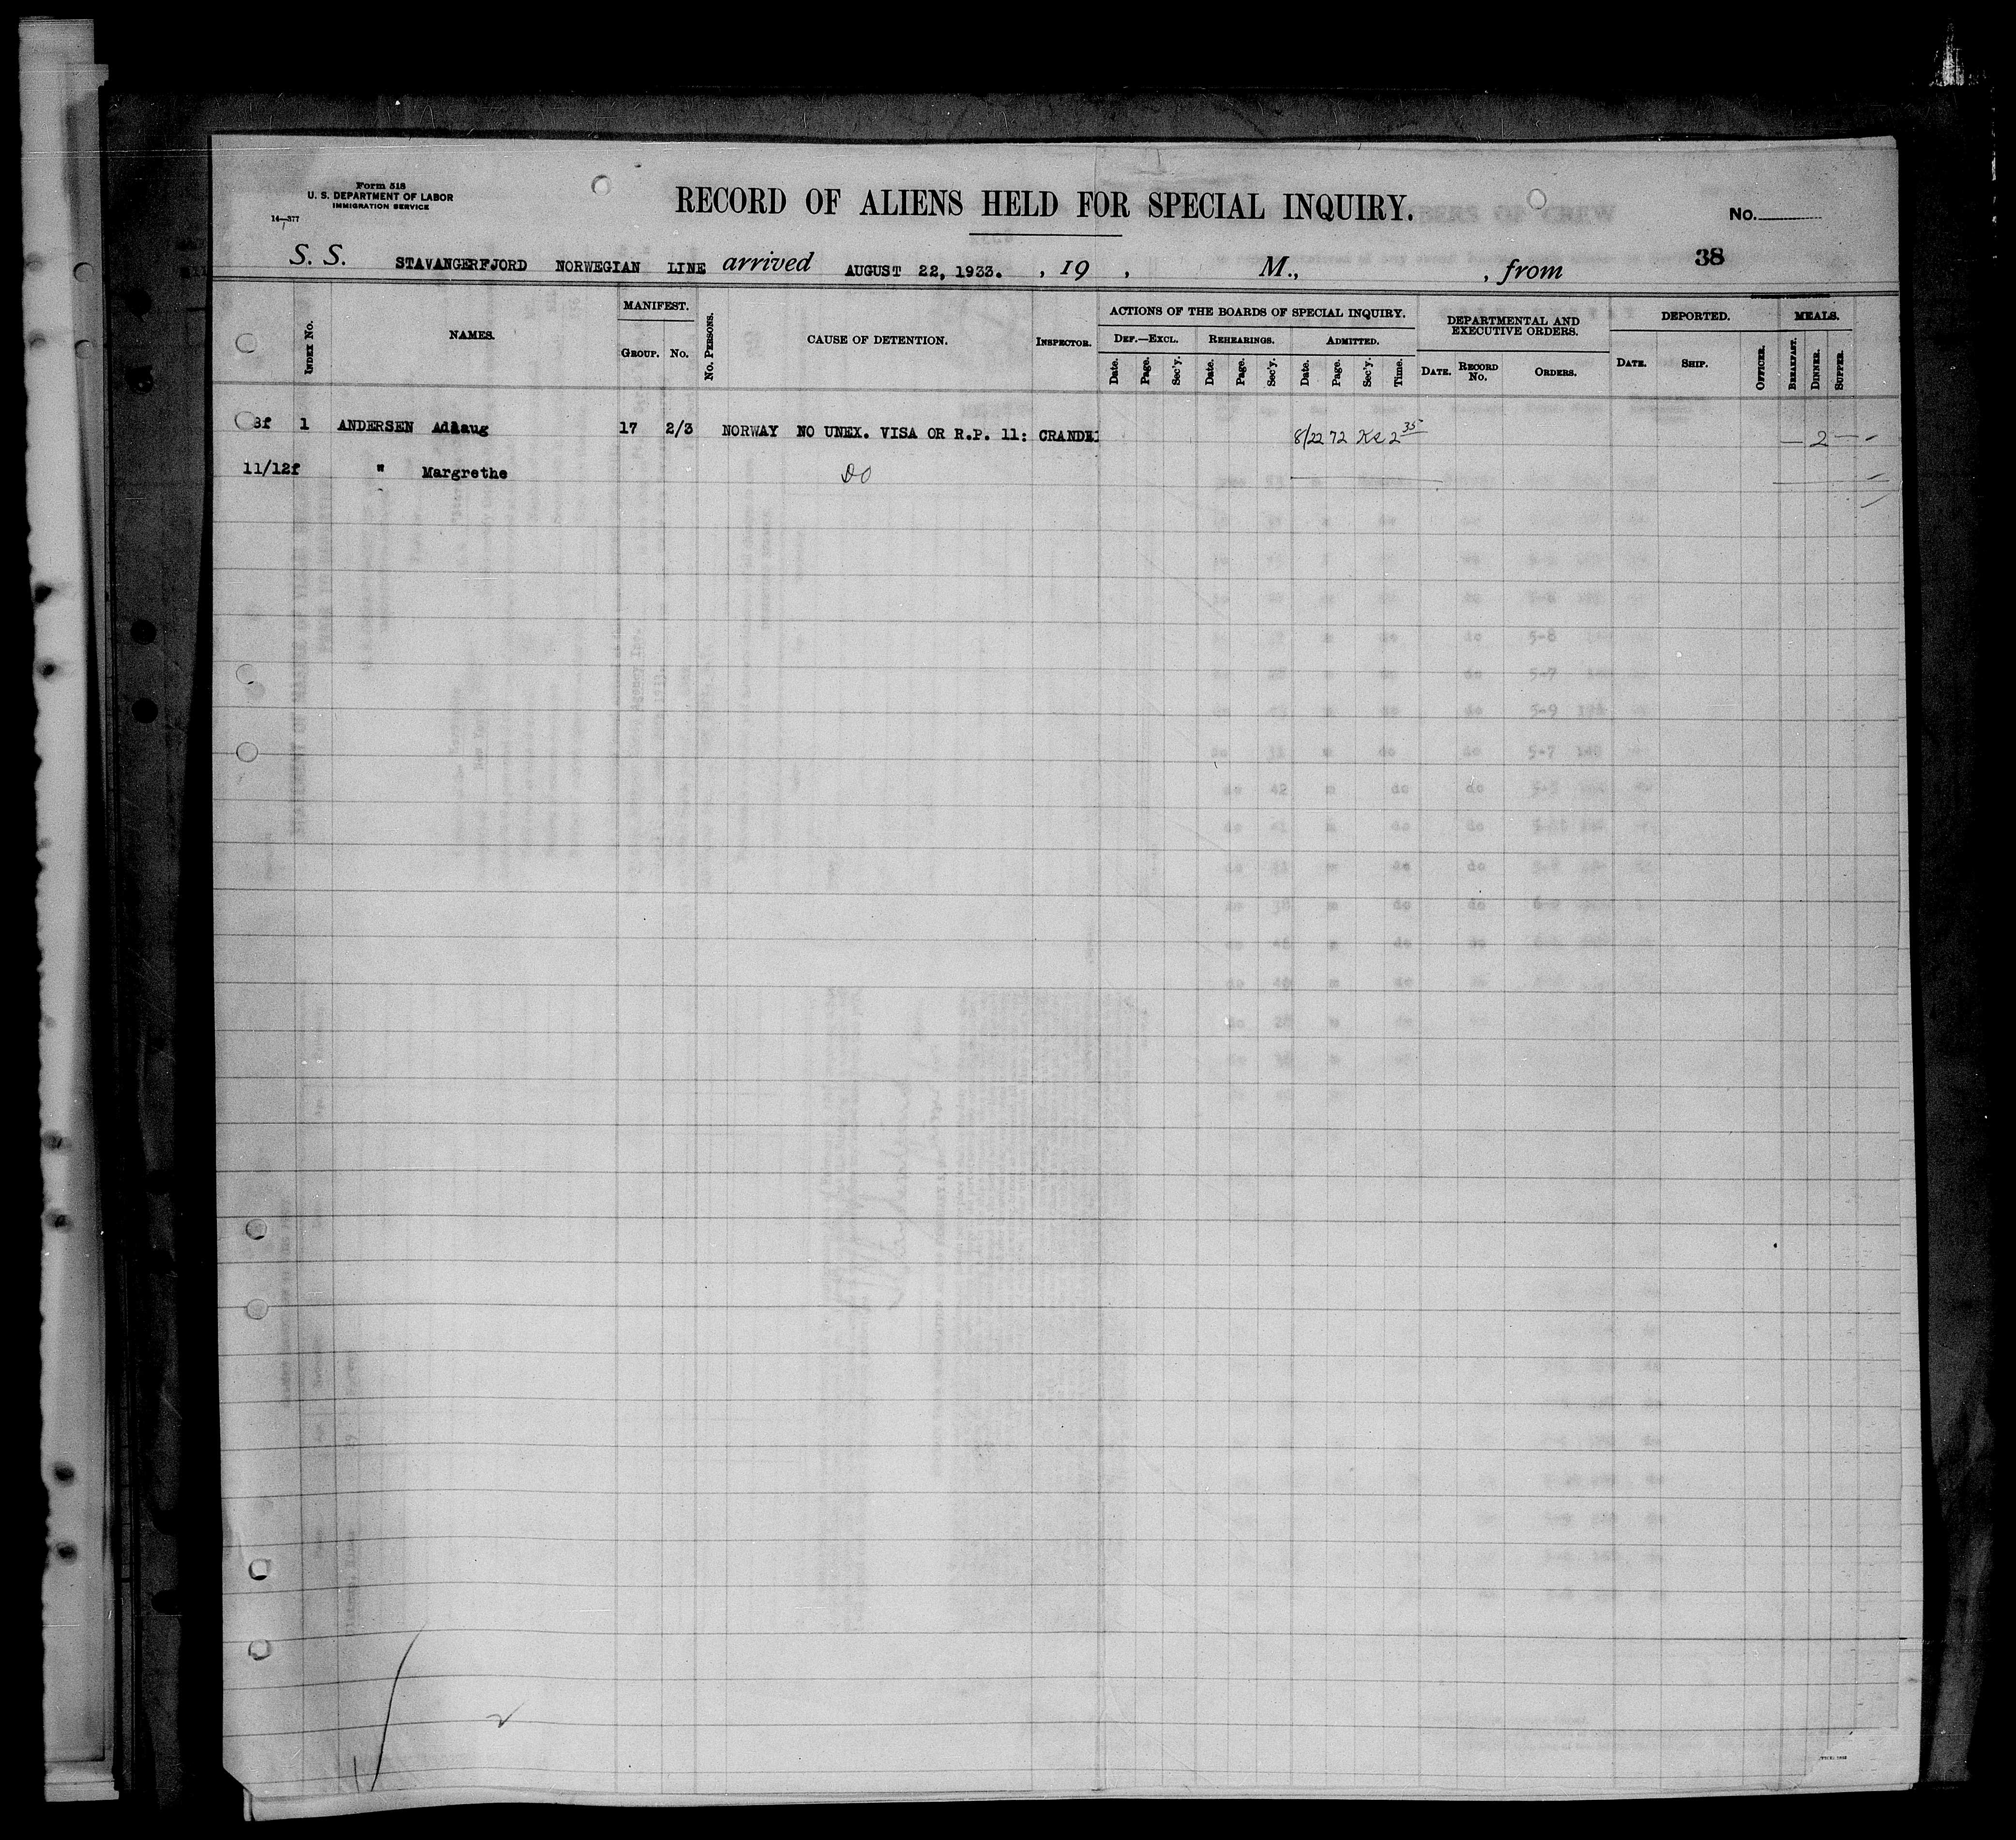 Form 518
U. S. DEPARTMENT OF LABOR
IMMIGRATION SERVICE
14—377
RECORD OF ALIENS HELD FOR SPECIAL INQUIRY.
No.
38
S. S. STAVANGERFJORD NORWEGIAN LINE arrived AUGUST 22, 1933. , 19 , M., , from
INDEX No.
NAMES.
MANIFEST.
GROUP. No.
No. PERSONS.
CAUSE OF DETENTION.
INSPECTOR.
ACTIONS OF THE BOARDS OF SPECIAL INQUIRY.
DEF.—EXCL. REHEARINGS. ADMITTED.
Date. Page. Sec'y. Date. Page. Sec'y. Date. Page. Sec'y. Time.
DEPARTMENTAL AND
EXECUTIVE ORDERS.
DATE. RECORD No. ORDERS.
DEPORTED.
DATE. SHIP. OFFICER.
MEALS.
BREAKFAST. DINNER. SUPPER.
3f 1 ANDERSEN 17 2/3 NORWAY NO UNEX. VISA OR R.P. 11: 8/22 72 2 35 — 2 — -
11/12f " Margrethe DO